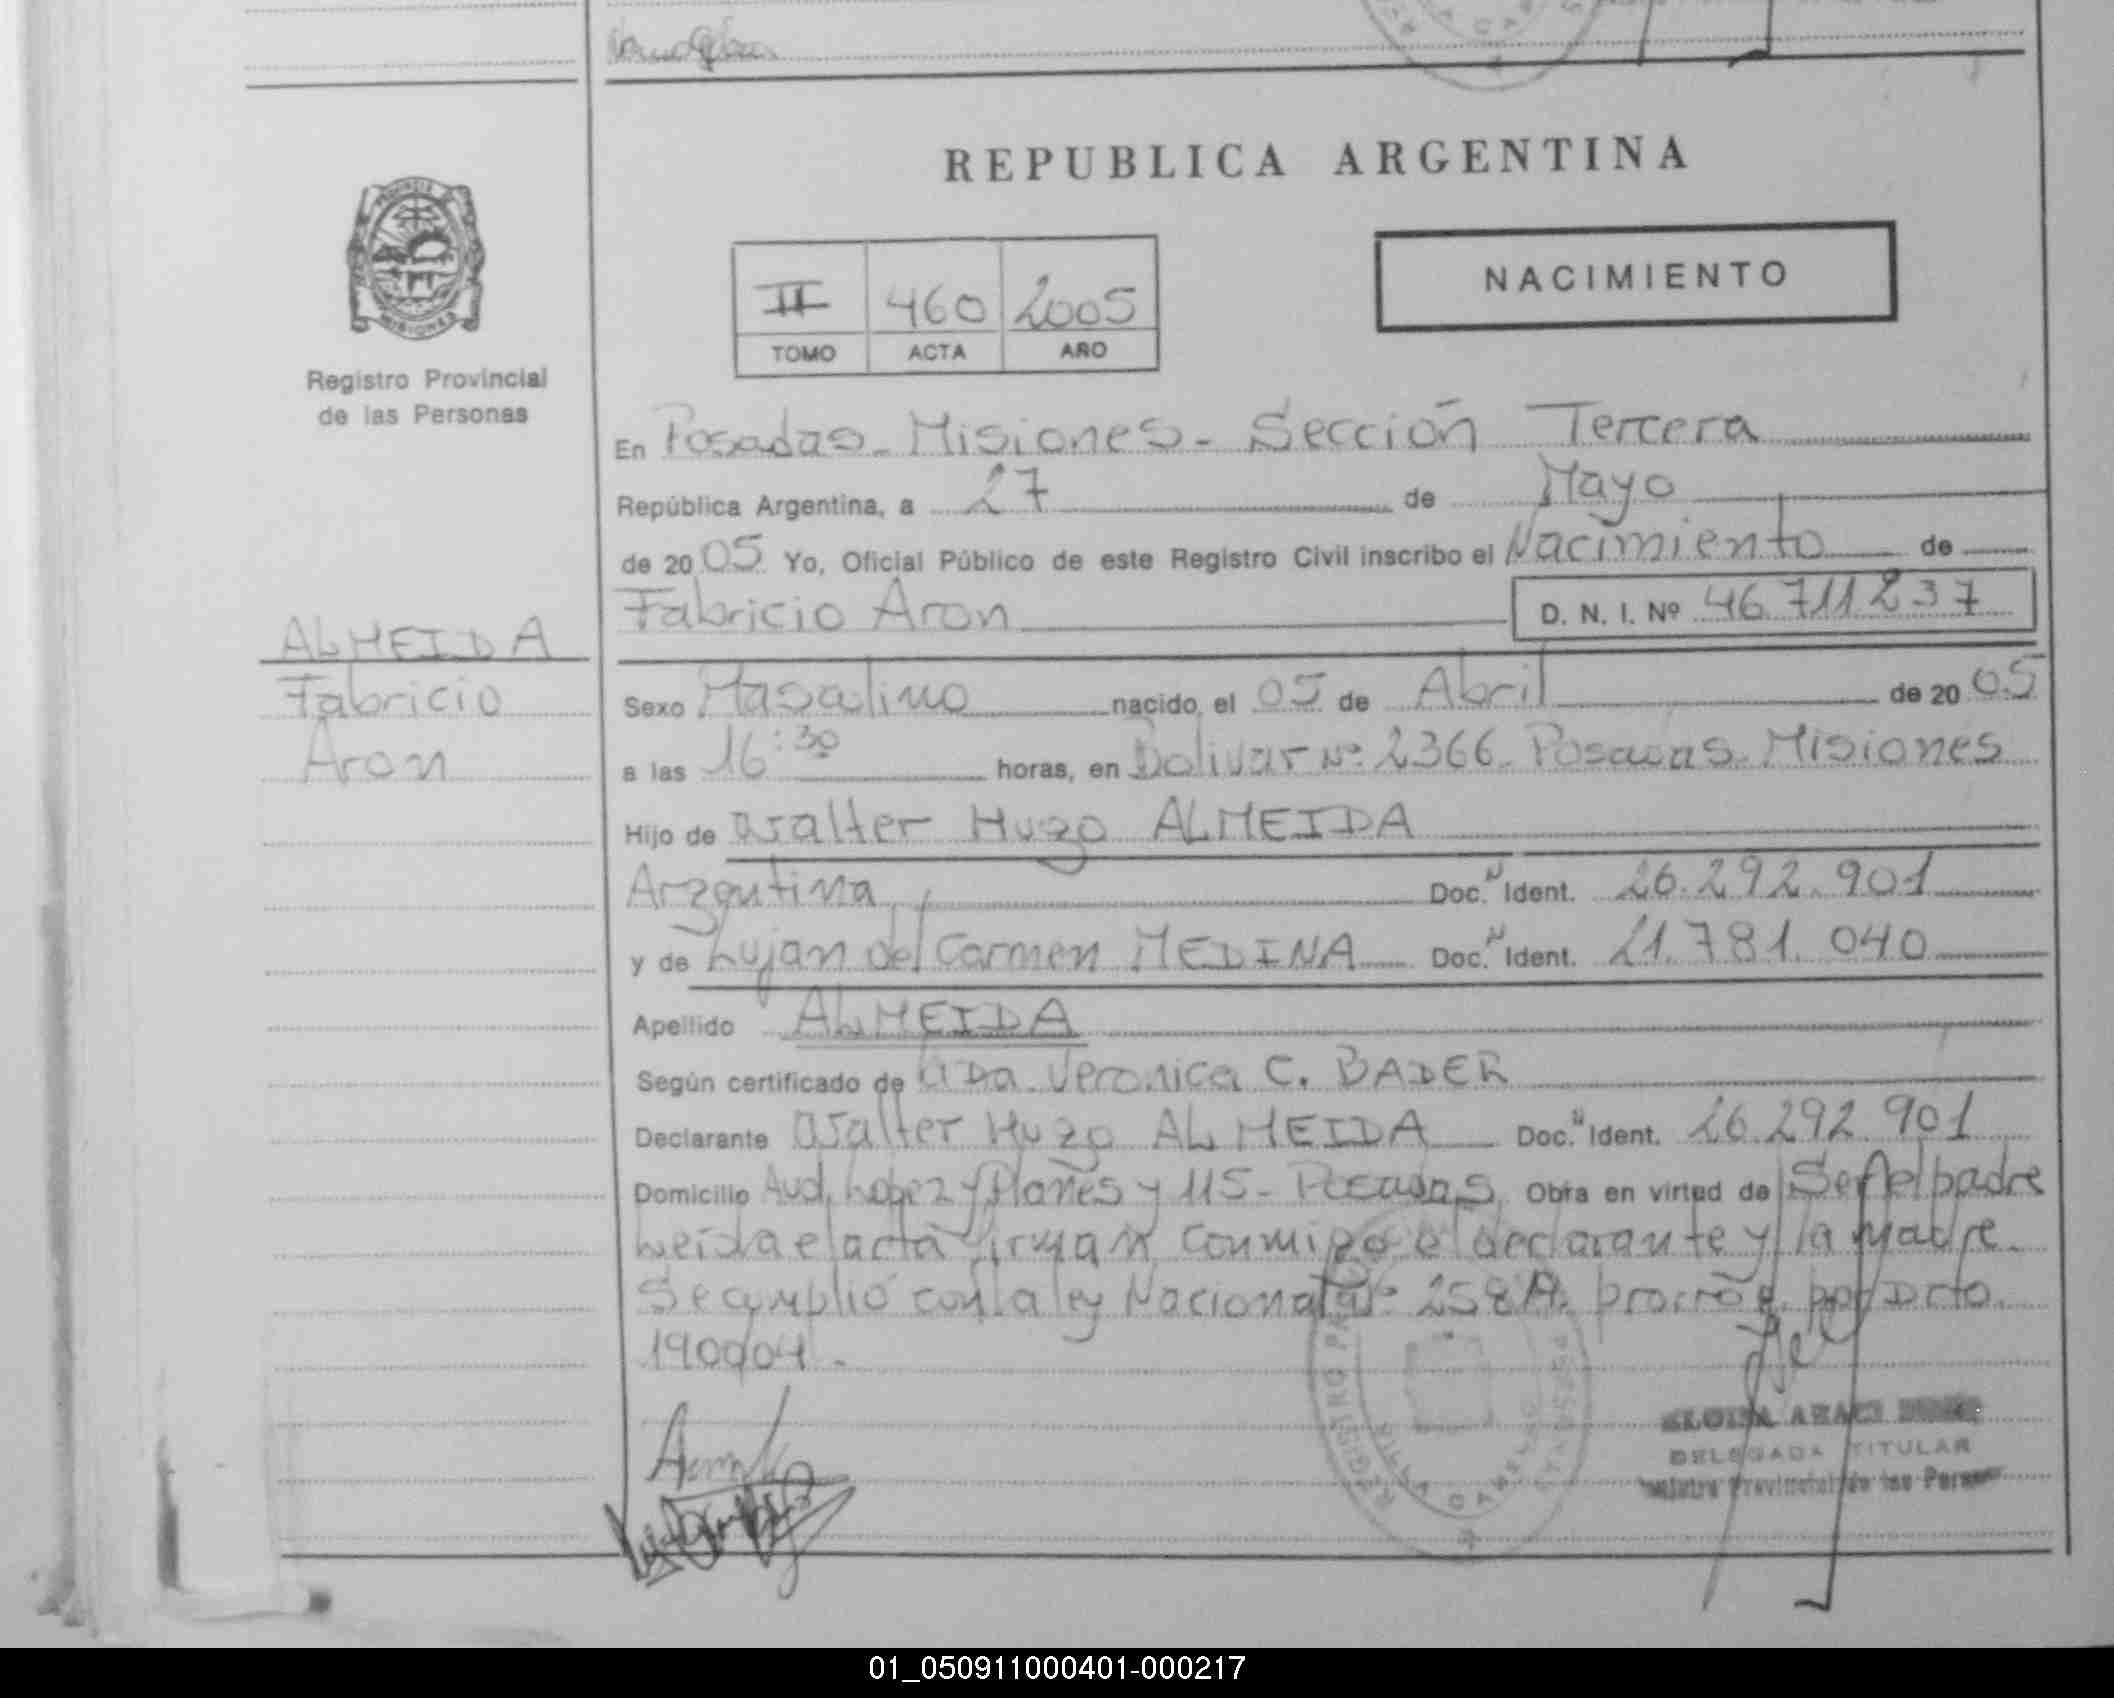 REPUBLICA ARGENTINA
PROVINCIA
MISIONES
NACIMIENTO
II 460 2005
TOMO ACTA AÑO
Registro Provincial
de las Personas
En Posadas - Misiones - Sección Tercera
República Argentina, a 27 de Mayo
de 20 05 Yo, Oficial Público de este Registro Civil inscribo el Nacimiento de
Fabricio Aron D. N. I. Nº 46.711.237
ALMEIDA
Fabricio
Aron
Sexo Masculino nacido el 05 de Abril de 20 05
a las 16:30 horas, en Bolivar Nº 2366 Posadas - Misiones
Hijo de Walter Hugo ALMEIDA
Argentina Doc. Ident. 26.292.901
y de Lujan del Carmen MEDINA Doc. Ident. 21.781.040
Apellido ALMEIDA
Según certificado de Veronica C. BADER
Declarante Walter Hugo ALMEIDA Doc. Ident. 26.292.901
Domicilio Avd. Lopez y Planes y 115 - Posadas Obra en virtud de Ser el padre
Leida el acta firman conmigo el declarante y la madre.
Se cumplió con la ley Nacional Nº por Dcto.
190004.
REGISTRO
DELEGADA TITULAR
Registro Provincial de las Personas
01_050911000401-000217